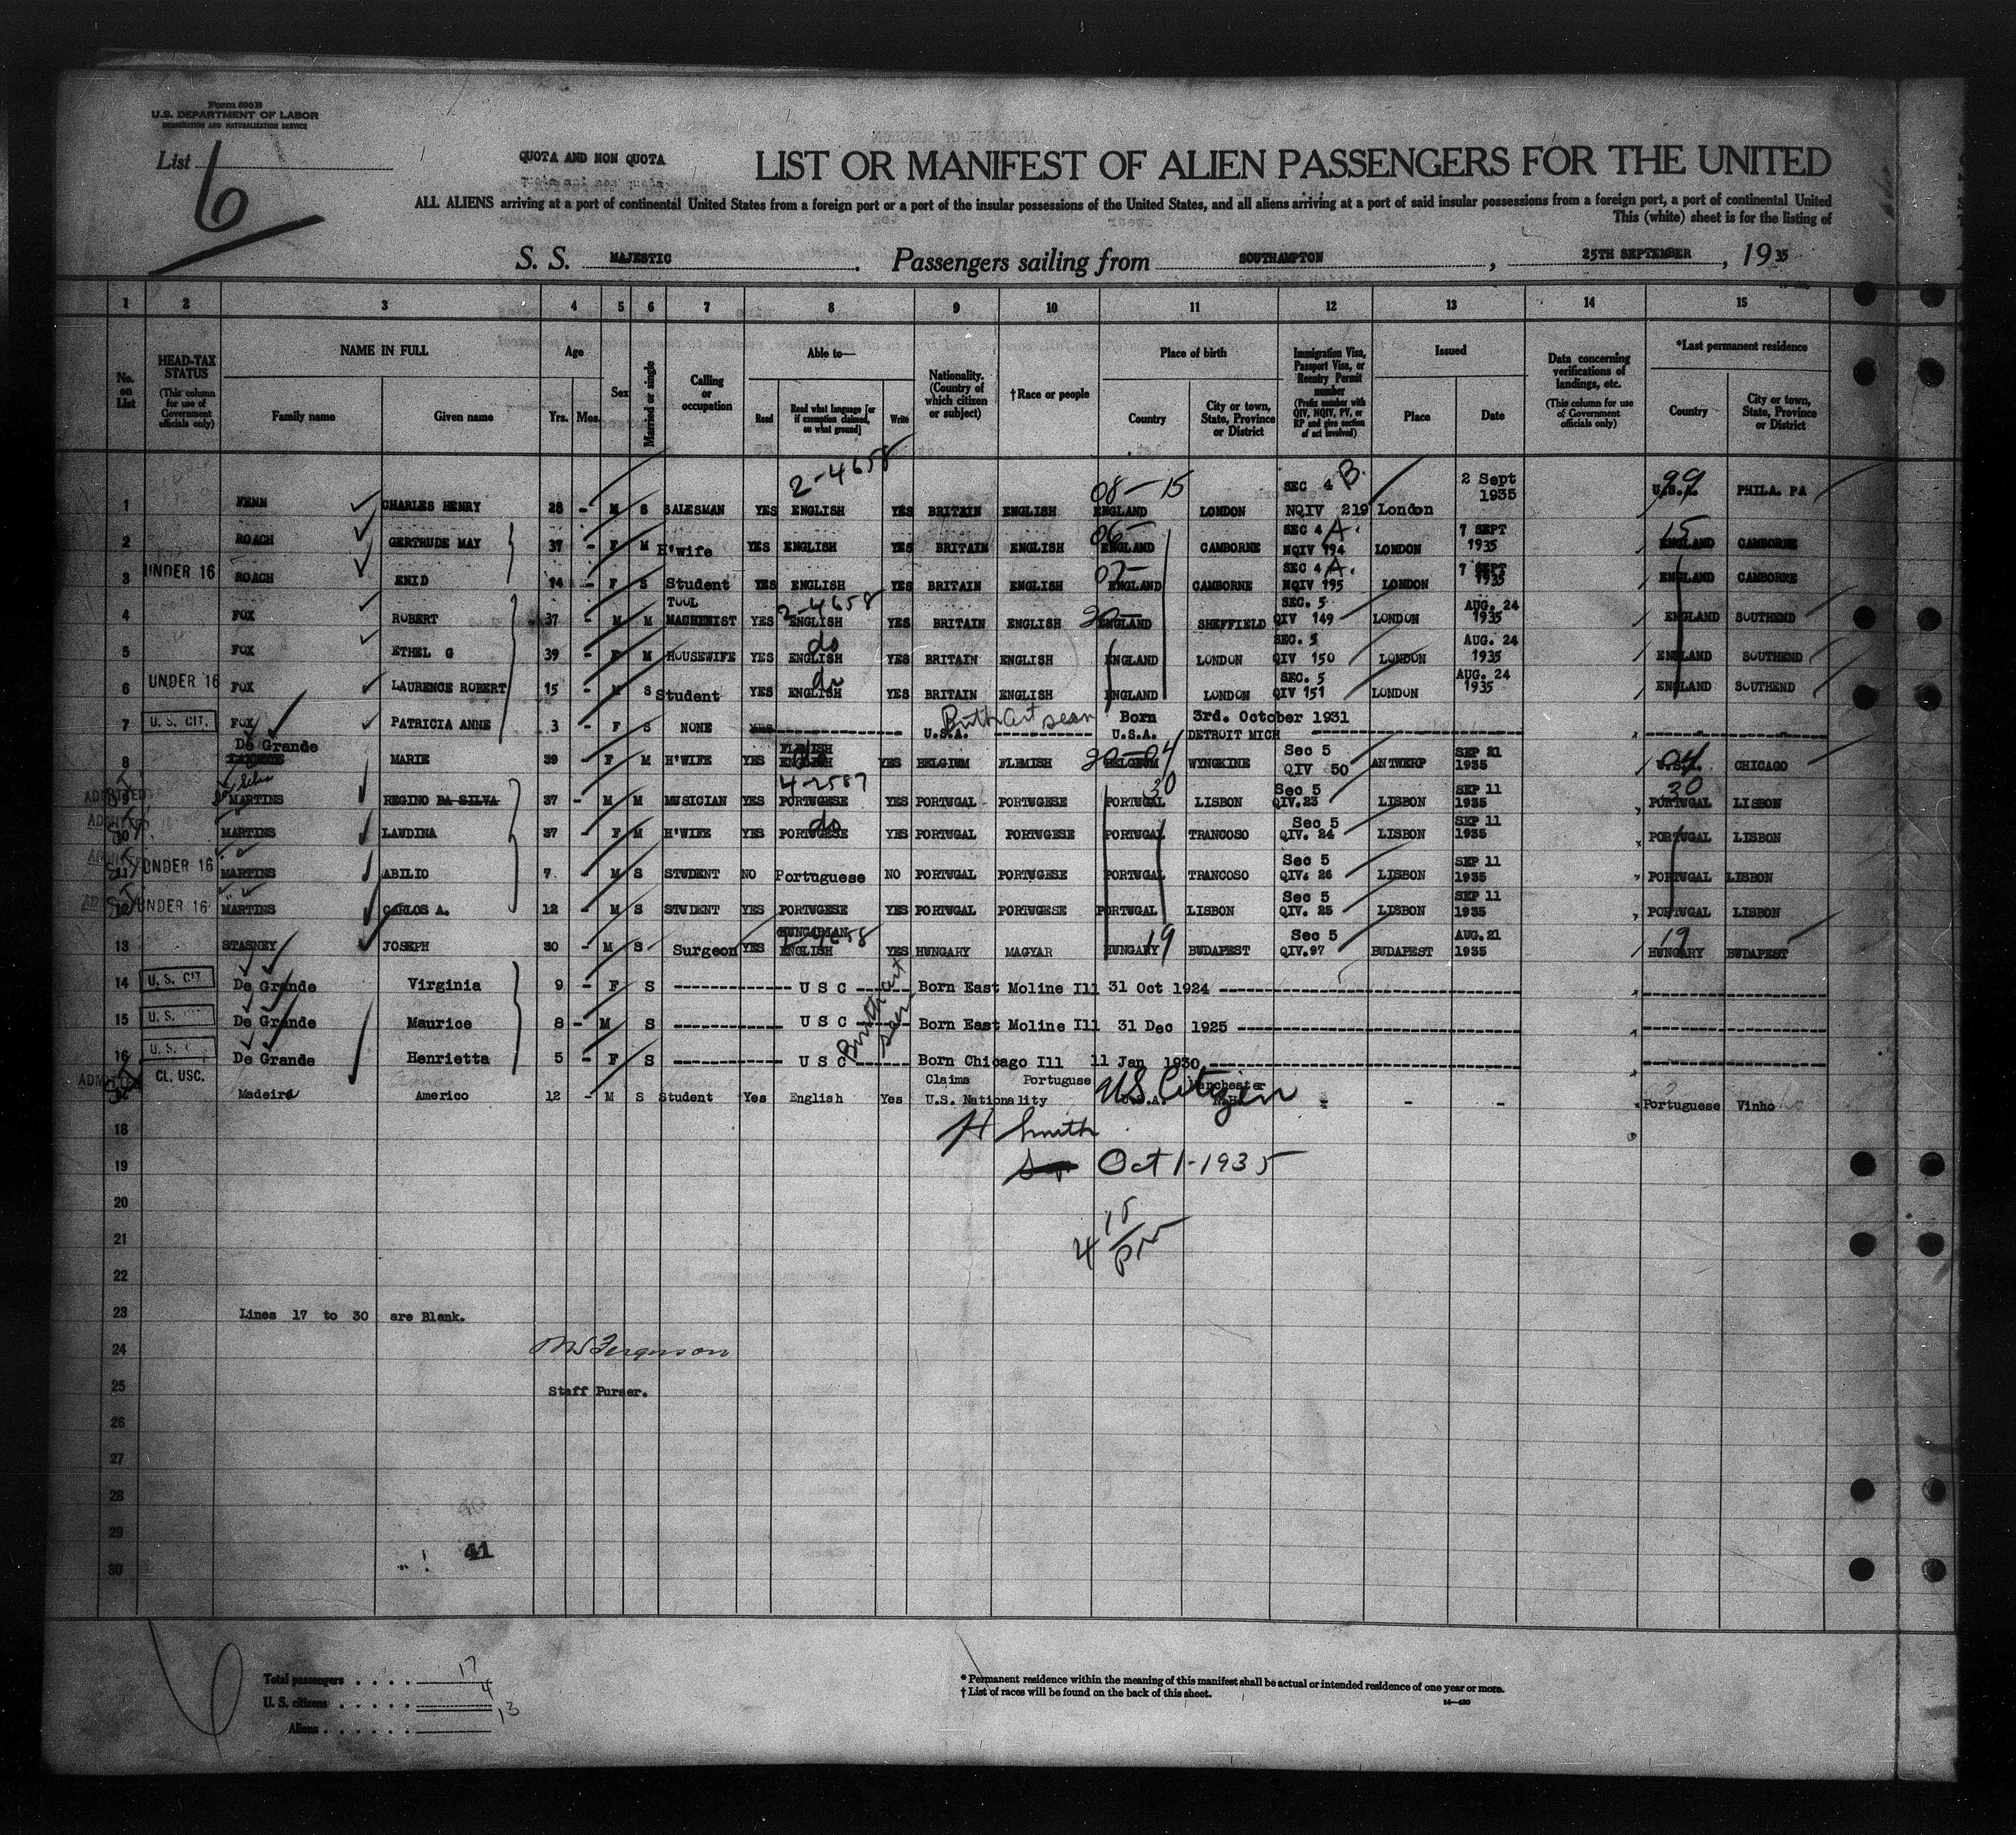 Form 500 B
U.S. DEPARTMENT OF LABOR
IMMIGRATION AND NATURALIZATION SERVICE
List 6
QUOTA AND NON QUOTA
LIST OR MANIFEST OF ALIEN PASSENGERS FOR THE UNITED
ALL ALIENS arriving at a port of continental United States from a foreign port or a port of the insular possessions of the United States, and all aliens arriving at a port of said insular possessions from a foreign port, a port of continental United
This (white) sheet is for the listing of
S. S. MAJESTIC. Passengers sailing from SOUTHAMPTON, 25TH SEPTEMBER, 1935
1 2 3 4 5 6 7 8 9 10 11 12 13 14 15
No. on List
HEAD-TAX STATUS (This column for use of Government officials only)
NAME IN FULL Family name Given name
Age Yrs. Mos.
Sex
Married or single
Calling or occupation
Able to— Read Read what language [or if exemption claimed, on what ground] Write
Nationality. (Country of which citizen or subject)
†Race or people
Place of birth Country City or town, State, Province or District
Immigration Visa, Passport Visa, or Reentry Permit number (Prefix number with QIV, NQIV, PV, or RP and give section of act involved)
Issued Place Date
Data concerning verifications of landings, etc. (This column for use of Government officials only)
*Last permanent residence Country City or town, State, Province or District
2-4658 08-15 SEC 4 B. 2 Sept 1935 99
1 FENN CHARLES HENRY 28 - M S SALESMAN YES ENGLISH YES BRITAIN ENGLISH ENGLAND LONDON NQIV 219 London U.S.A. PHILA. PA
06- SEC 4 A. 7 SEPT 15
2 ROACH GERTRUDE MAY 37 - F M H'wife YES ENGLISH YES BRITAIN ENGLISH ENGLAND CAMBORNE NQIV 194 LONDON 1935 ENGLAND CAMBORNE
SEC 4 A. 7 SEPT
3 UNDER 16 ROACH ENID 14 - F S Student YES ENGLISH YES BRITAIN ENGLISH ENGLAND CAMBORNE NQIV 195 LONDON 1935 ENGLAND CAMBORNE
TOOL 2-4658 SEC. 5 AUG. 24
4 FOX ROBERT 37 - M M MACHENIST YES ENGLISH YES BRITAIN ENGLISH ENGLAND SHEFFIELD QIV 149 LONDON 1935 ENGLAND SOUTHEND
do SEC. 5 AUG. 24
5 FOX ETHEL G 39 - F M HOUSEWIFE YES ENGLISH YES BRITAIN ENGLISH ENGLAND LONDON QIV 150 LONDON 1935 ENGLAND SOUTHEND
do SEC. 5 AUG. 24
6 UNDER 16 FOX LAURENCE ROBERT 15 - M S Student YES ENGLISH YES BRITAIN ENGLISH ENGLAND LONDON QIV 151 LONDON 1935 ENGLAND SOUTHEND
Birth Cert seen
7 U. S. CIT. FOX PATRICIA ANNE 3 - F S NONE U.S.A. Born U.S.A. 3rd. October 1931 DETROIT MICH
De Grande FLEMISH Sec 5 SEP 21 04
8 MARIE 39 - F M H'WIFE YES ENGLISH YES BELGIUM FLEMISH BELGIUM WYNGKINE QIV 50 ANTWERP 1935 U.S.A. CHICAGO
4-2587 30 Sec 5 SEP 11 30
ADMITTED 9 MARTINS REGINO DA SILVA 37 - M M MUSICIAN YES PORTUGESE YES PORTUGAL PORTUGESE PORTUGAL LISBON QIV.23 LISBON 1935 PORTUGAL LISBON
do Sec 5 SEP 11
ADMITTED 10 MARTINS LAUDINA 37 - F M H'WIFE YES PORTUGESE YES PORTUGAL PORTUGESE PORTUGAL TRANCOSO QIV. 24 LISBON 1935 PORTUGAL LISBON
Sec 5 SEP 11
11 UNDER 16 MARTINS ABILIO 7. - M S STUDENT NO Portuguese NO PORTUGAL PORTUGESE PORTUGAL TRANCOSO QIV. 26 LISBON 1935 PORTUGAL LISBON
Sec 5 SEP 11
12 UNDER 16 MARTINS CARLOS A. 12 - M S STUDENT YES PORTUGESE YES PORTUGAL PORTUGESE PORTUGAL LISBON QIV. 25 LISBON 1935 PORTUGAL LISBON
HUNGARIAN Sec 5 AUG.21 19
13 STASNEY JOSEPH 30 - M S Surgeon YES ENGLISH YES HUNGARY MAGYAR HUNGARY 19 BUDAPEST QIV.97 BUDAPEST 1935 HUNGARY BUDAPEST
14 U. S. CIT. De Grande Virginia 9 - F S U S C Born East Moline Ill 31 Oct 1924
15 U. S. De Grande Maurice 8 - M S U S C Born East Moline Ill 31 Dec 1925
16 U. S. De Grande Henrietta 5 - F S U S C Born Chicago Ill 11 Jan 1930
Birth Cert seen
ADMITTED CL. USC. Madeira Americo 12 - M S Student Yes English Yes Claims U.S. Nationality Portuguse U.S.A. Manchester N.H. - - Portuguese Vinho
US Citizen
18 H Smith
19 Oct 1-1935
20
21 4 15/PM
22
23 Lines 17 to 30 are Blank.
24 Ferguson
25 Staff Purser.
26
27
28
29 41
30
Total passengers . . . . 17
U. S. citizens . . . . . 4
Aliens . . . . . . 13
* Permanent residence within the meaning of this manifest shall be actual or intended residence of one year or more.
† List of races will be found on the back of this sheet.
14—420